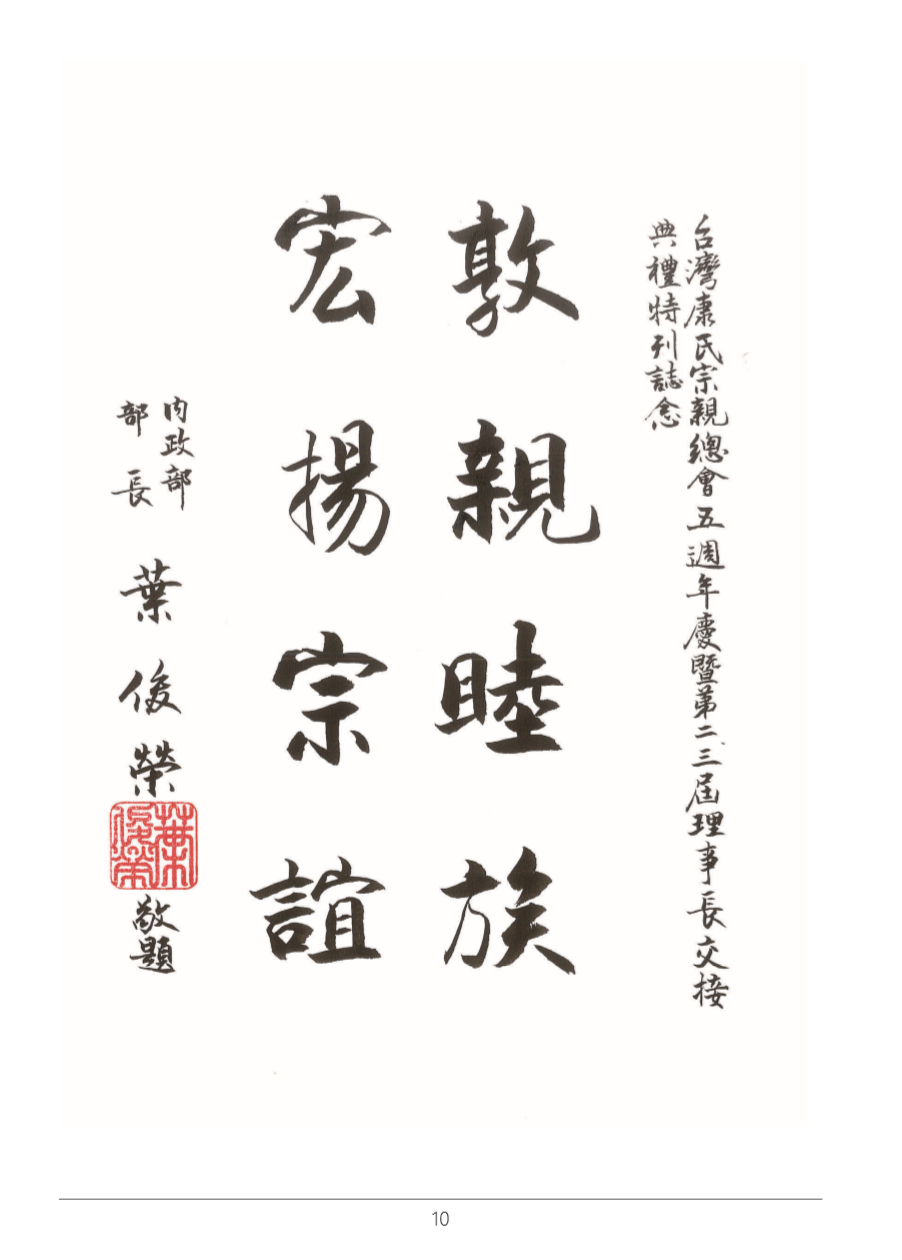 台灣康氏宗親總會五週年慶暨第二、三屆理事長交接
典禮特刊誌念
敦親睦族
宏揚宗誼
內政部
部長 葉俊榮 敬題
葉俊榮
10